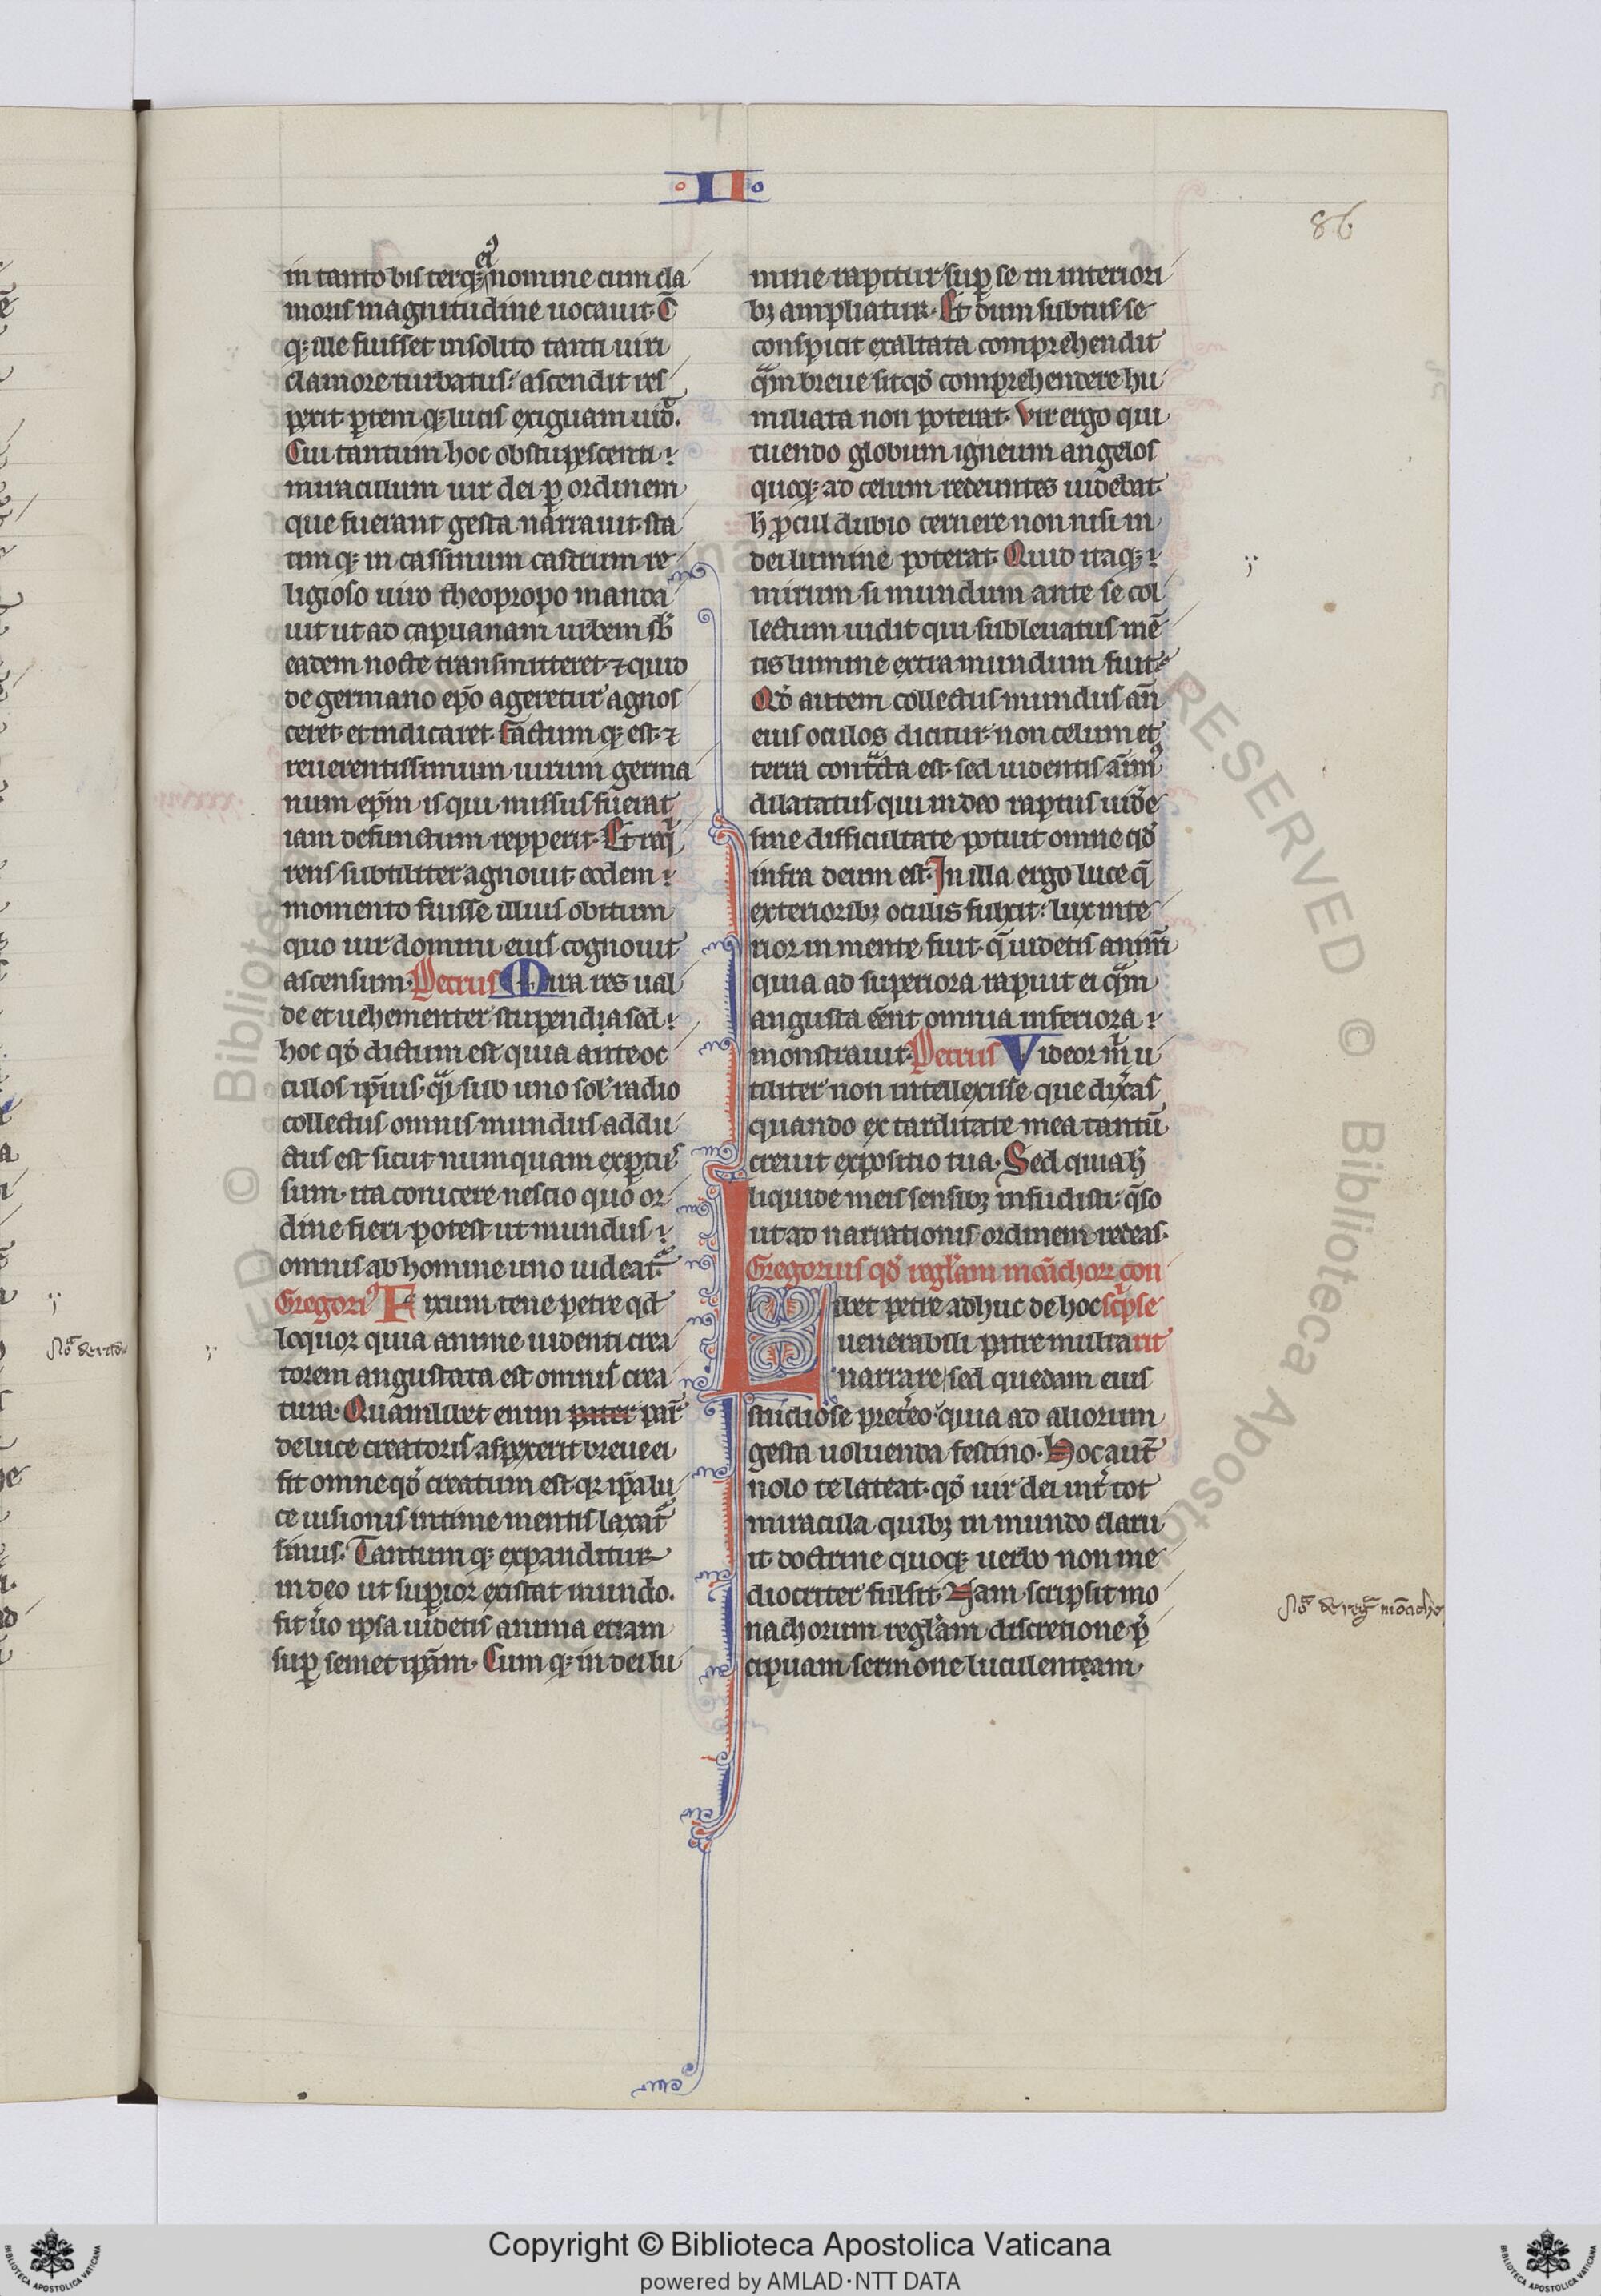 II
86
in tanto bis terq; ei9 nomine cum cla
moris magnitudine uocauit. C̄
q; ille fuisset insolito tanti uiri
clamore turbatus: ascendit res
pexit ꝑtem q; lucis exiguam uid̾.
Cui tantum hoc obstupescenti
miraculum uir dei ꝑ ordinem
que fuerant gesta narrauit. sta
tim q; in cassinum castrum re
ligioso uiro theopropo manda
uit ut ad capuanam urbem sb̄
eadem nocte transmitteret. ⁊ quid
de germano ep̄o ageretur agnos
ceret et indicaret. fāctum q; est. ⁊
reuerentissimum uirum germa
num ep̄m is qui missus fuerat
iam defunctum repperit. Et req̄
rens subtiliter agnouit eodem
momento fuisse illius obitum
quo uir domini eius cognouit
ascensum. Petrus Mira res ual
de et uehementer stupenda sed
hoc qd̾ dictum est quia ante oc
culos ip̄ius. q̾i sub uno sol̾ radio
collectus omnis mundus addu
ctus est sicut numquam exꝑtus
sum. ita conicere nescio quo or
dine fieri potest ut mundus
omnis ab homine uno uideat̾.
Gregori9 Fixum tene petre qd̾
loquor quia anime uidenti crea
torem angustata est omnis crea
tura. Quamlibet enim pater par̄
de luce creatoris aspexerit breue ei
fit omne qd̾ creatum est. qr ip̄a lu
ce uisionis intime mentis laxat̾
sinus. Tantum q; expanditur
in deo ut suꝑior existat mundo.
fit u̾o ipsa uidētis anima etiam
suꝑ semet ip̄am. Cum q; in dei lu
mine rapitur suꝑ se in interiori
bꝫ ampliatur. Et dum subtus se
conspicit exaltata comprehendit
q̾m breue sit qd̾ comprehendere hu
miliata non poterat. Vir ergo qui
tuendo globum igneum angelos
quoq; ad celum redeuntes uidebat.
h̄ ꝓcul dubio cernere non nisi in
dei lumine poterat. Quid itaq;
mirum si mundum ante se col
lectum uidit qui subleuatus mē
tis lumine extra mundum fuit.
Qd̾ autem collectus mundus an̄
eius oculos dicitur non celum et
terra contr̾cta est. sed uidentis anim9
dilatatus qui in deo raptus uide̾
sine difficultate potuit omne qd̾
infra deum est. In illa ergo luce q̄
exterioribꝫ oculis fulxit: lux inte
rior in mente fuit. q̄ uidētis anim̄
quia ad superiora rapuit ei q̾m
angusta ēēnt omnia inferiora
monstrauit. Petrus Videor m̾ u
tiliter non intellexisse que dix̾as
quando ex tarditate mea tantū
creuit expositio tua. Sed quia h̄
liquide meis sensibꝫ infudisti: q̄so
ut ad narrationis ordinem redeas.
Gregorius qd̾ regl̾am monachorr con
Libet petre adhuc de hoc sc̾pse
uenerabili patre multa rit
narrare sed quedam eius
studiose pretēo. quia ad aliorum
gesta uoluenda festino. Hoc aut̄
nolo te lateat. qd̾ uir dei int̾ tot
miracula quibꝫ in mundo claru
it. doctrine quoq; uerbo non me
diocriter fulsit. Nam scripsit mo
nachorum regl̾am discretione p̾
cipuam sermone luculentęam.
No̾ de reg̾ monacho
Copyright © Biblioteca Apostolica Vaticana
powered by AMLAD·NTT DATA